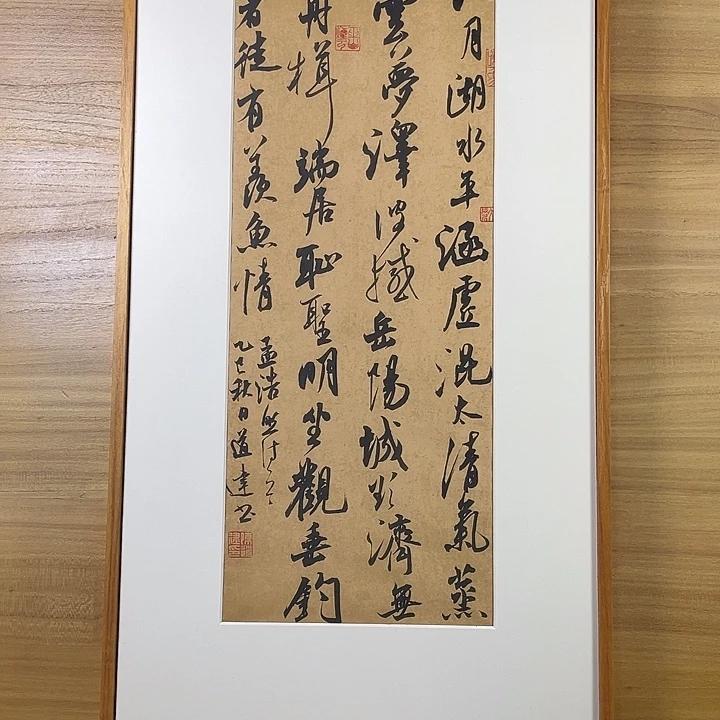 月湖水平涵虛混太清氣蒸
雲夢澤波撼岳陽城欲濟無
舟楫端居恥聖明坐觀垂釣
者徒有羨魚情
孟浩然詩一首
乙巳秋日道達书